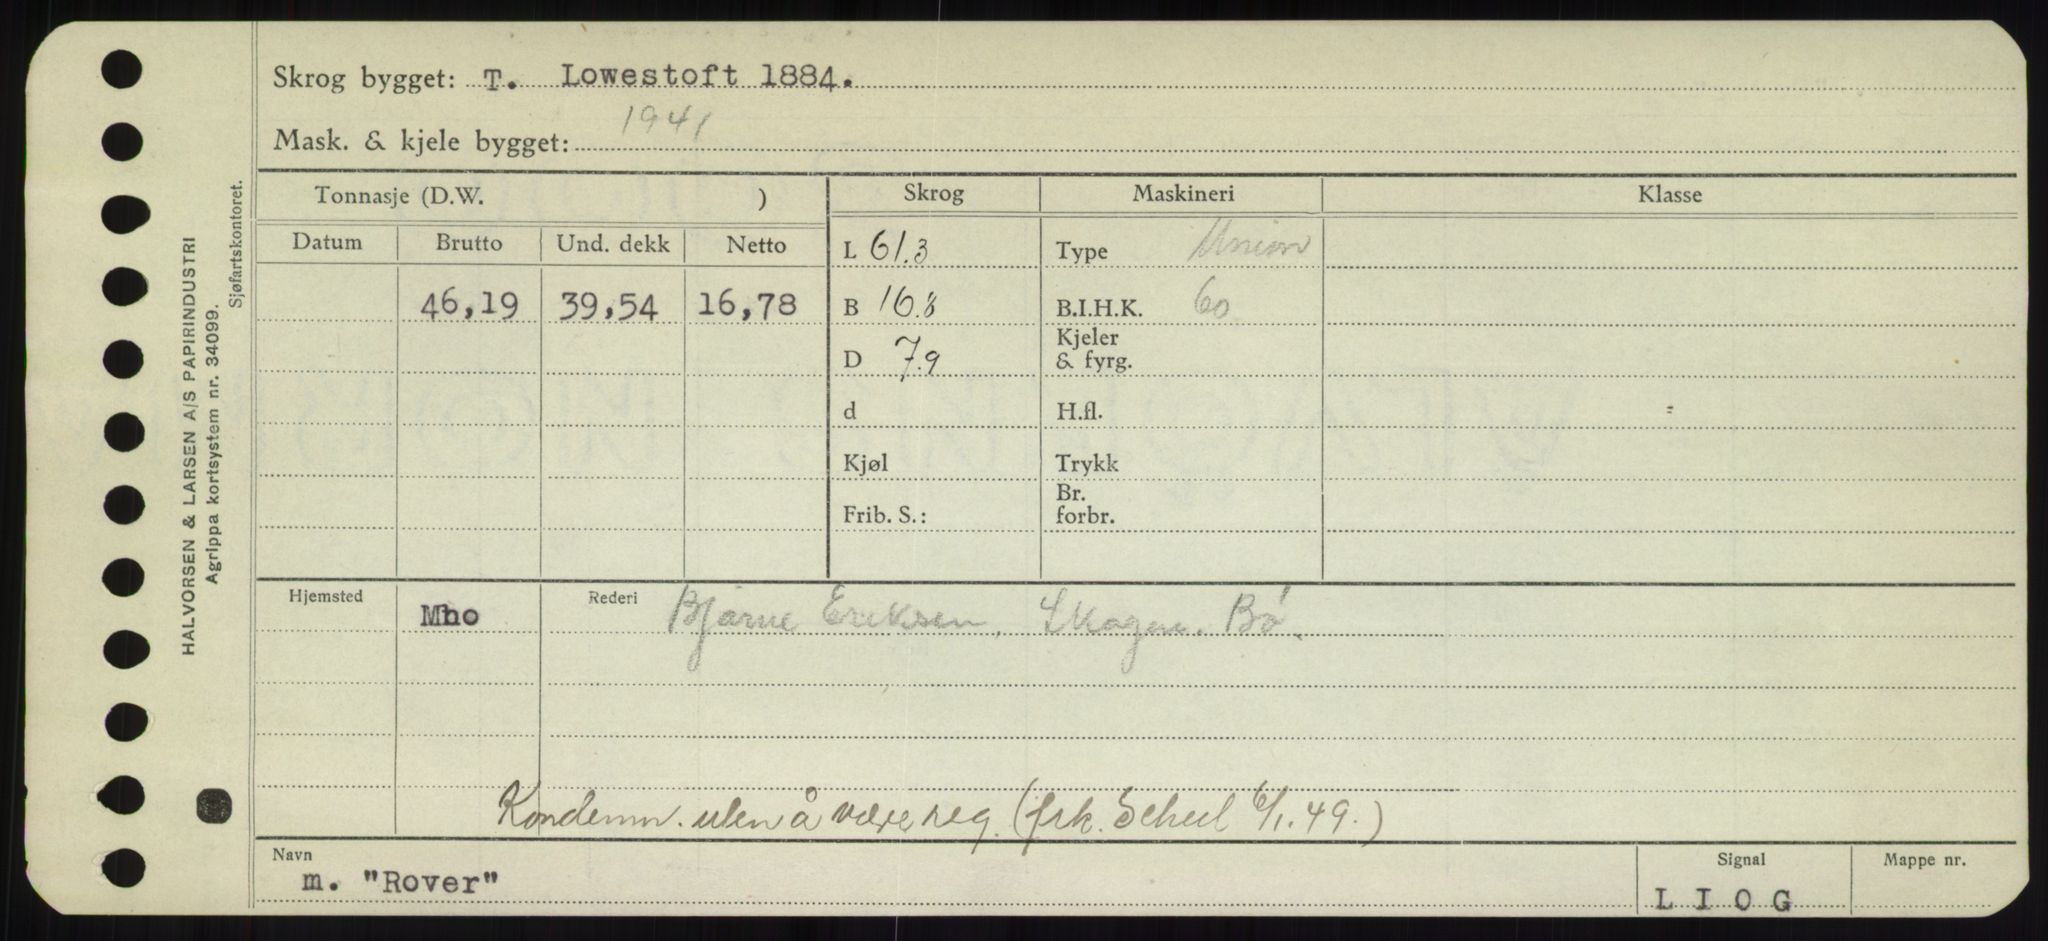 Skrog bygget: T. Lowestoft 1884.
Mask. & kjele bygget: 1941
HALVORSEN & LARSEN A/S PAPIRINDUSTRI
Agrippa kortsystem nr. 34099.
Sjøfartskontoret.
Tonnasje (D.W. ) Skrog Maskineri Klasse
Datum Brutto Und. dekk Netto L 61.3 Type Union
46,19 39,54 16,78 B 16.8 B.I.H.K. 60
D 7.9 Kjeler & fyrg.
d H.fl.
Kjøl Trykk
Frib. S.: Br. forbr.
Hjemsted Mho Rederi Bjarne Eriksen, Skagen. Bø.
Kondemn. uten å være reg. (frk. Scheel 6/1.49.)
Navn Signal Mappe nr.
m. "Rover" L I O G